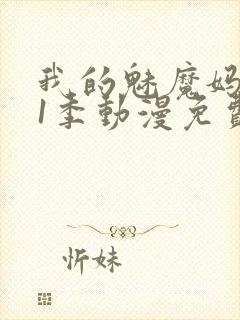 我的魅魔妈
1季動漫免費
忻妹